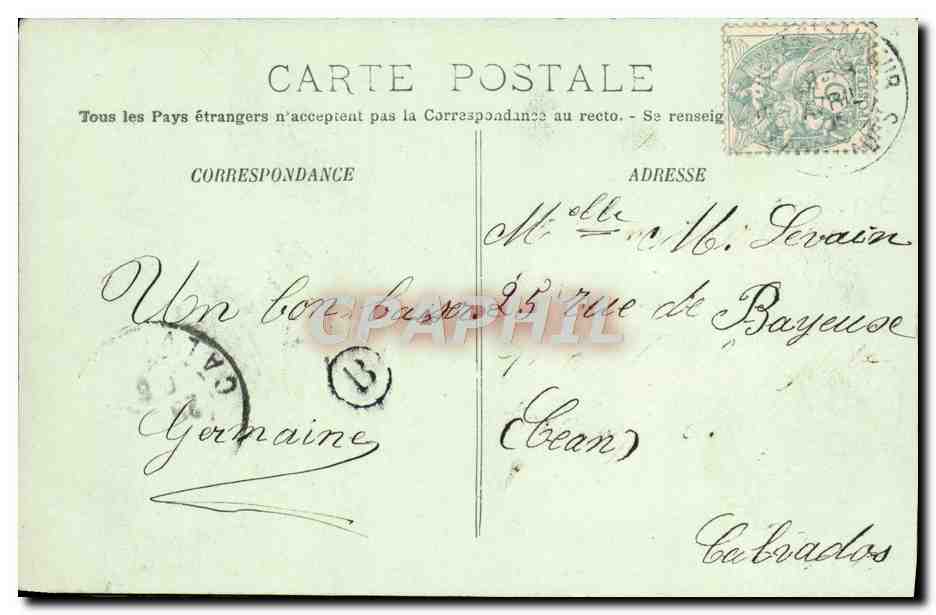 CARTE POSTALE
Tous les Pays étrangers n'acceptent pas la Correspondance au recto. - Se renseig
CORRESPONDANCE
Un bon baiser
Germaine
B
CAL
ADRESSE
Melle M. Levain
25 rue de Bayeuse
(Cean)
Calvados
CPAPHIL